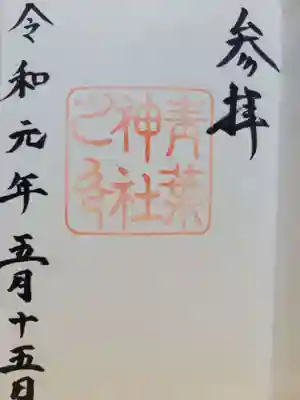 参拝
青葉
神社
之印
令和元年五月十五日